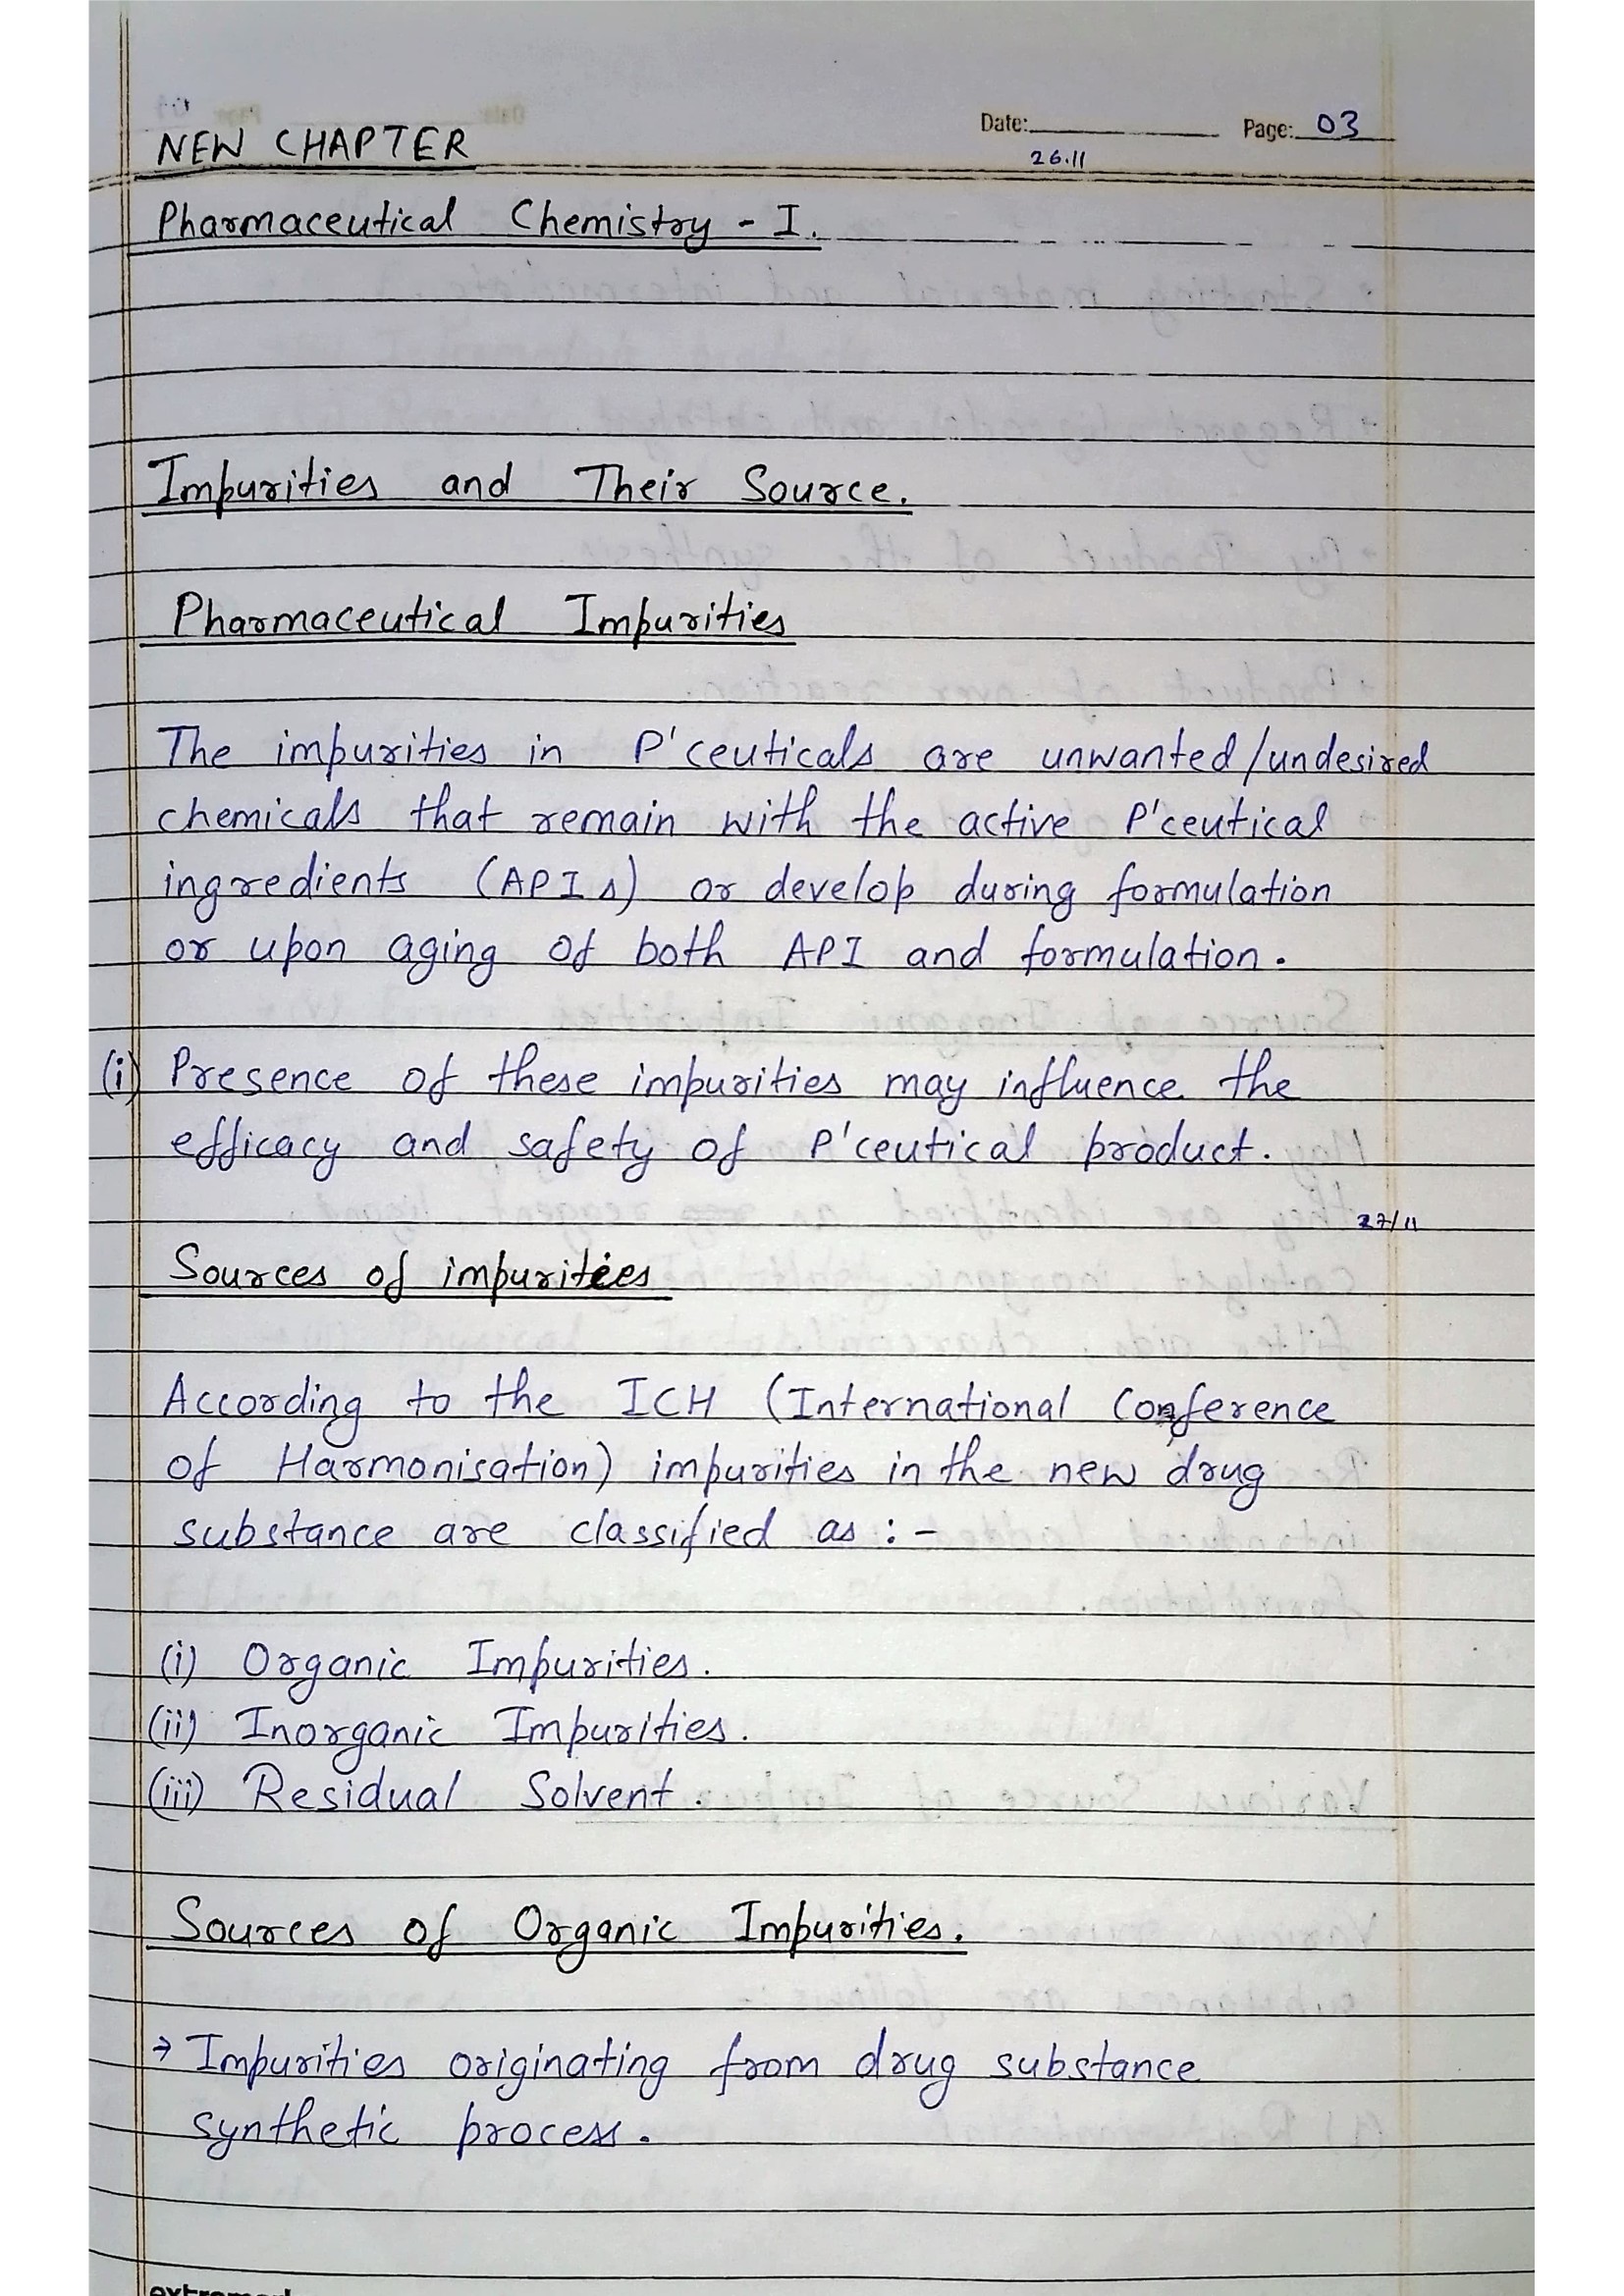 NEW CHAPTER
Date: 26.11 Page: 03
Pharmaceutical Chemistry - I.
Impurities and Their Source.
Pharmaceutical Impurities
The impurities in P'ceuticals are unwanted/undesired
chemicals that remain with the active P'ceutical
ingredients (APIs) or develop during formulation
or upon aging of both API and formulation.
(i) Presence of these impurities may influence the
efficacy and safety of P'ceutical product.
27/11
Sources of impurities
According to the ICH (International Conference
of Harmonisation) impurities in the new drug
substance are classified as : -
(i) Organic Impurities.
(ii) Inorganic Impurities.
(iii) Residual Solvent.
Sources of Organic Impurities.
→ Impurities originating from drug substance
synthetic process.